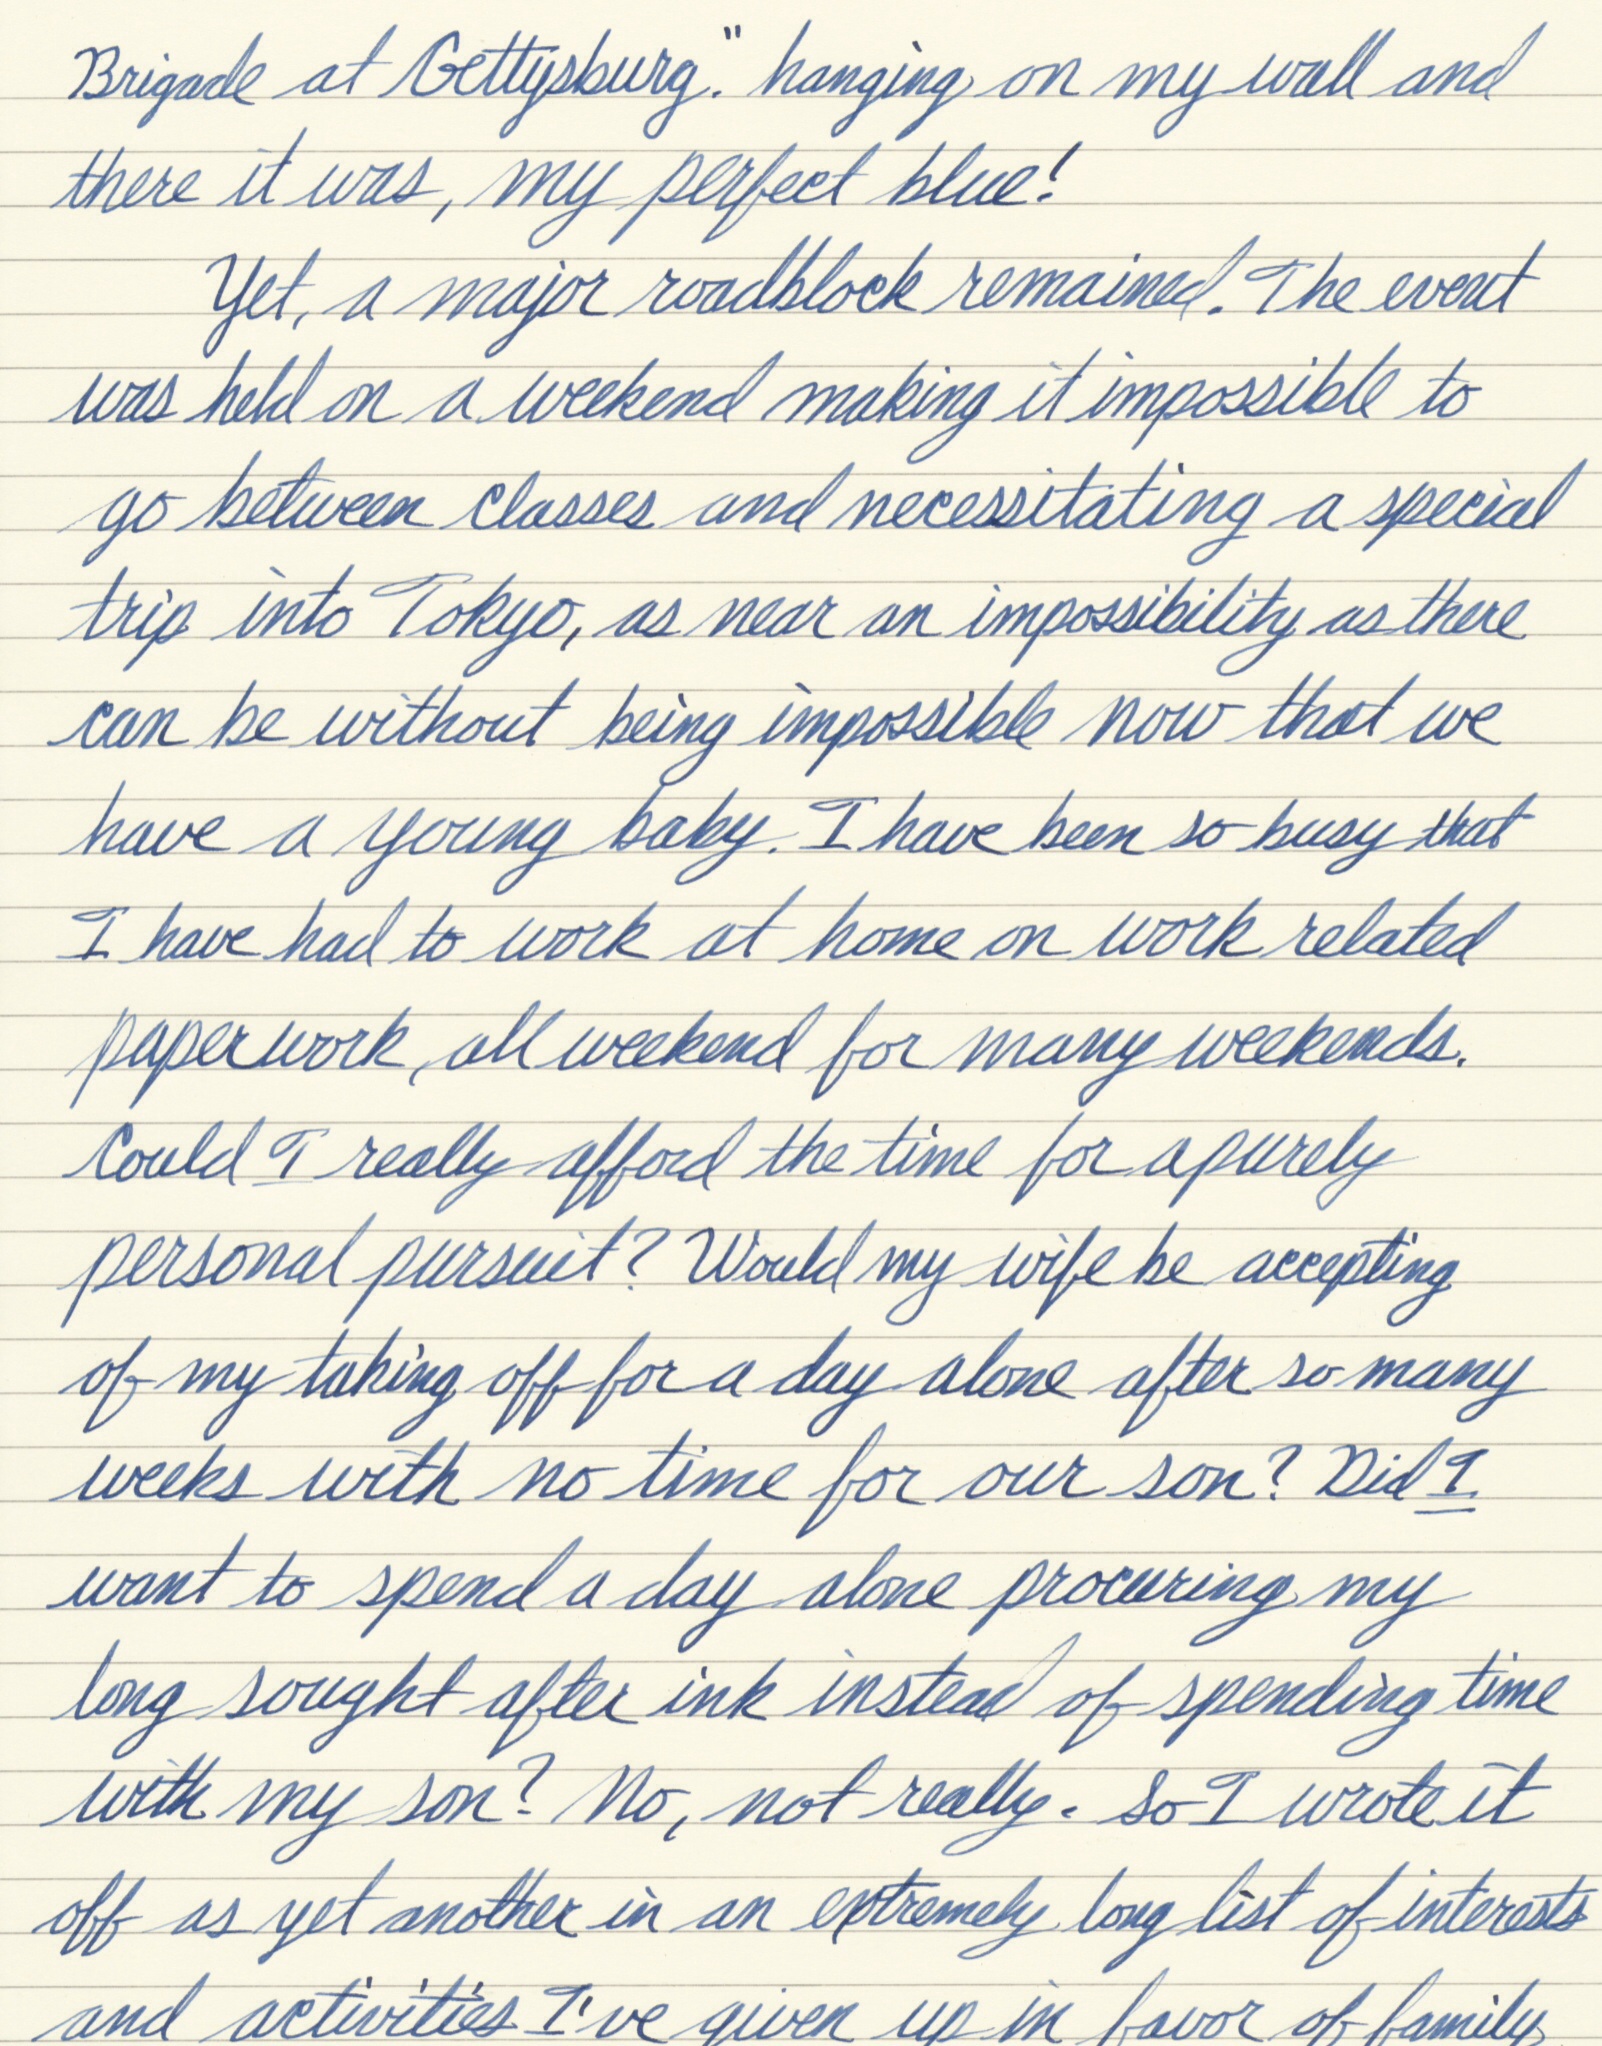 Brigade at Gettysburg." hanging on my wall and
there it was, my perfect blue!
Yet, a major roadblock remained. The event
was held on a weekend making it impossible to
go between classes and necessitating a special
trip into Tokyo, as near an impossibility as there
can be without being impossible now that we
have a young baby. I have been so busy that
I have had to work at home on work related
paperwork, all weekend for many weekends.
Could I really afford the time for a purely
personal pursuit? Would my wife be accepting
of my taking off for a day alone after so many
weeks with no time for our son? Did I
want to spend a day alone procuring my
long sought after ink instead of spending time
with my son? No, not really. So I wrote it
off as yet another in an extremely long list of interests
and activities I've given up in favor of family